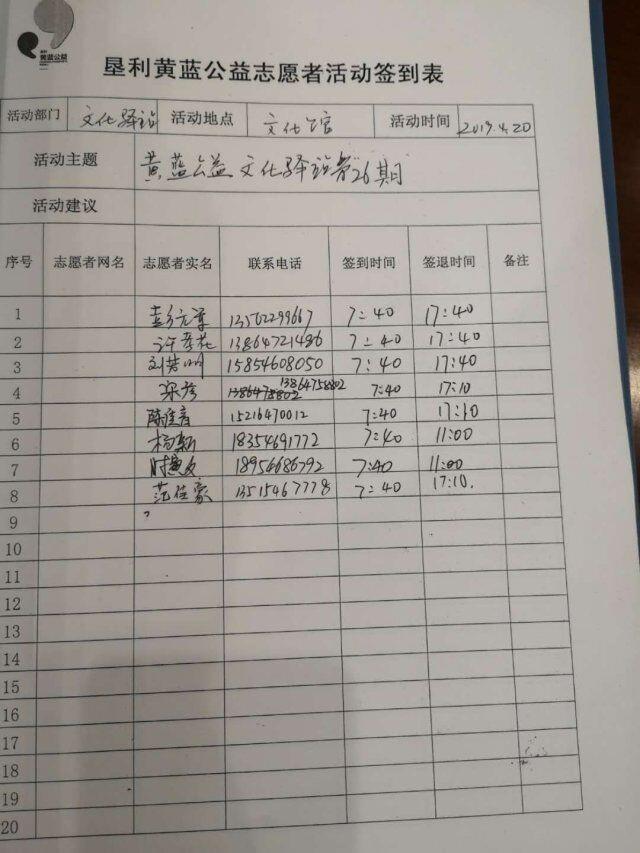 黄蓝公益
垦利黄蓝公益志愿者活动签到表
活动部门 文化驿站 活动地点 文化馆 活动时间 2019.4.20
活动主题 黄蓝公益文化驿站第26期
活动建议
序号 志愿者网名 志愿者实名 联系电话 签到时间 签退时间 备注
1 13562299667 7:40 17:40
2 许春花 13864721486 7:40 17:40
3 刘芳明 15854608050 7:40 17:40
4 梁彦 13864758802 7:40 17:10
5 15216470012 7:40 17:10
6 杨新 18354691772 7:40 11:00
7 18954686792 7:40 11:00
8 范佳豪 13515467778 7:40 17:10.
9
10
11
12
13
14
15
16
17
18
19
20